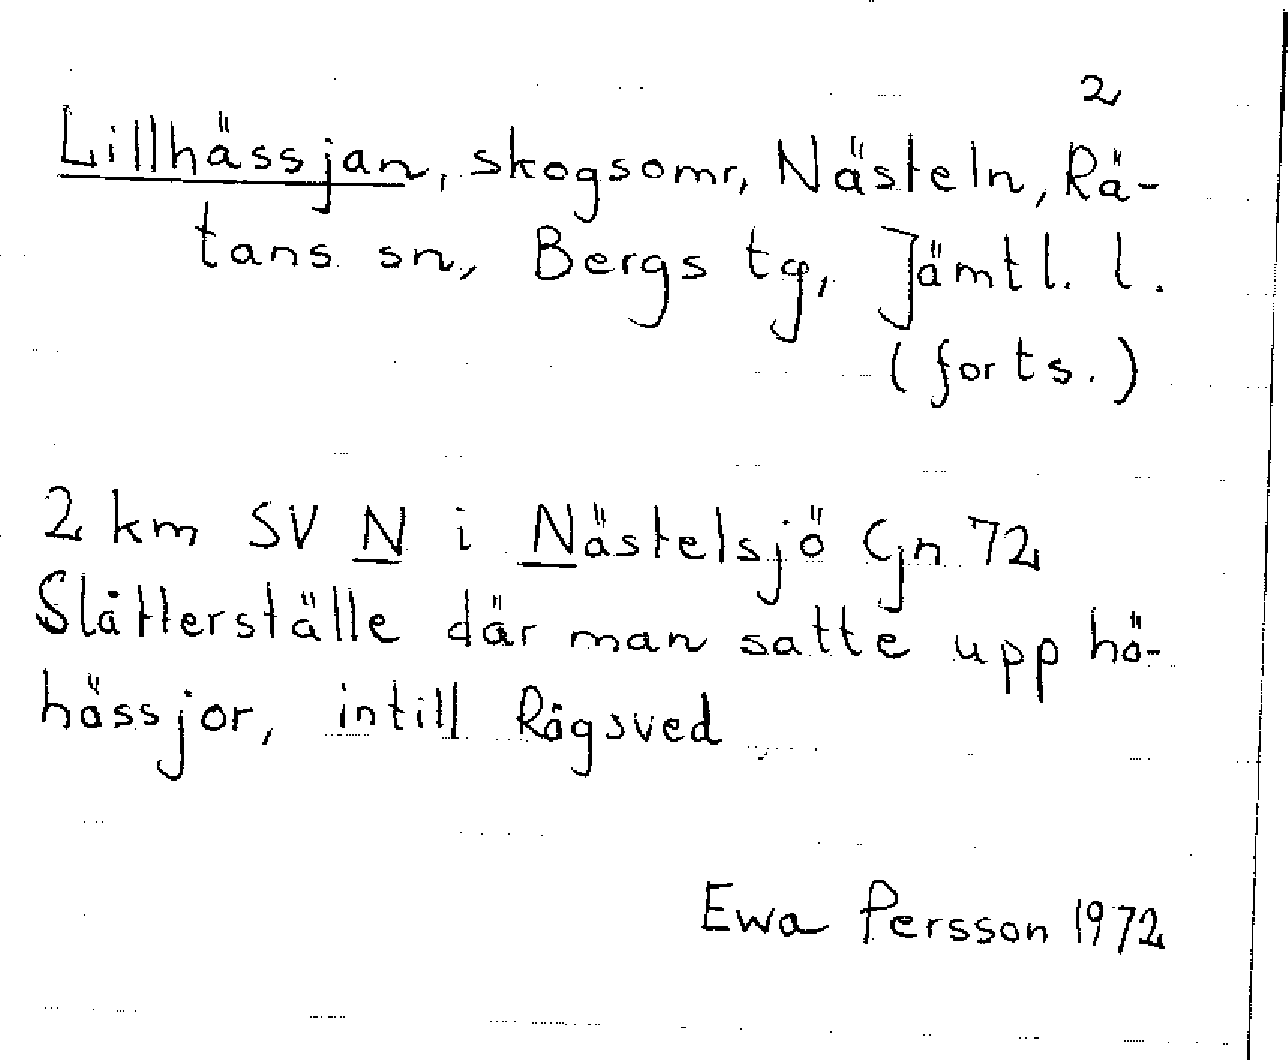 2
Lillhässjan, skogsomr, Nästeln, Rä-
tans sn, Bergs tg, Jämtl. l.
(forts.)
2 km SV N i Nästelsjö Gn 72
Slåtterställe där man satte upp hö-
hässjor, intill Rågsved
Ewa Persson 1972